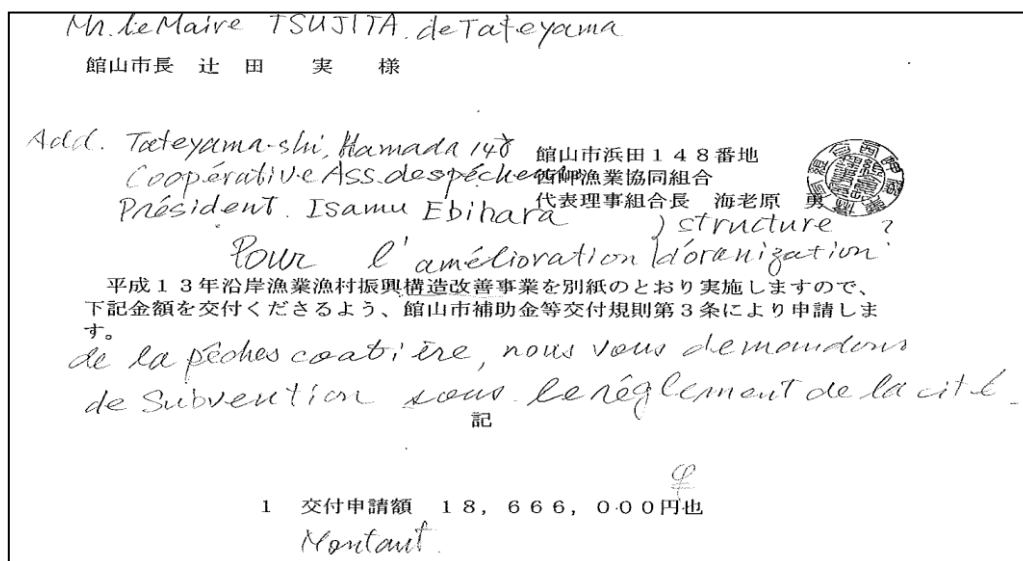 Mr. le Maire TSUJITA. de Tateyama
館山市長 辻田 実 様
Add. Tateyama-shi, Hamada 148
館山市浜田148番地
Coopérative Ass. des pêcheurs
西岬漁業協同組合
Président. Isamu Ebihara
代表理事組合長 海老原 勇
structure ?
Pour l'amélioration d'oranization
平成13年沿岸漁業漁村振興構造改善事業を別紙のとおり実施しますので、
下記金額を交付くださるよう、館山市補助金等交付規則第3条により申請しま
す。
de la pêches coatière, nous vous demandons
de Subvention sous le réglement de la cité
記
1 交付申請額 18,666,000円也
Montant